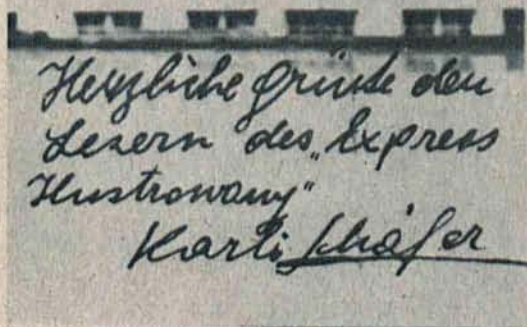 Herzliche Grüße den
Lesern des „Express
Ilustrowany“
Karli Schäfer